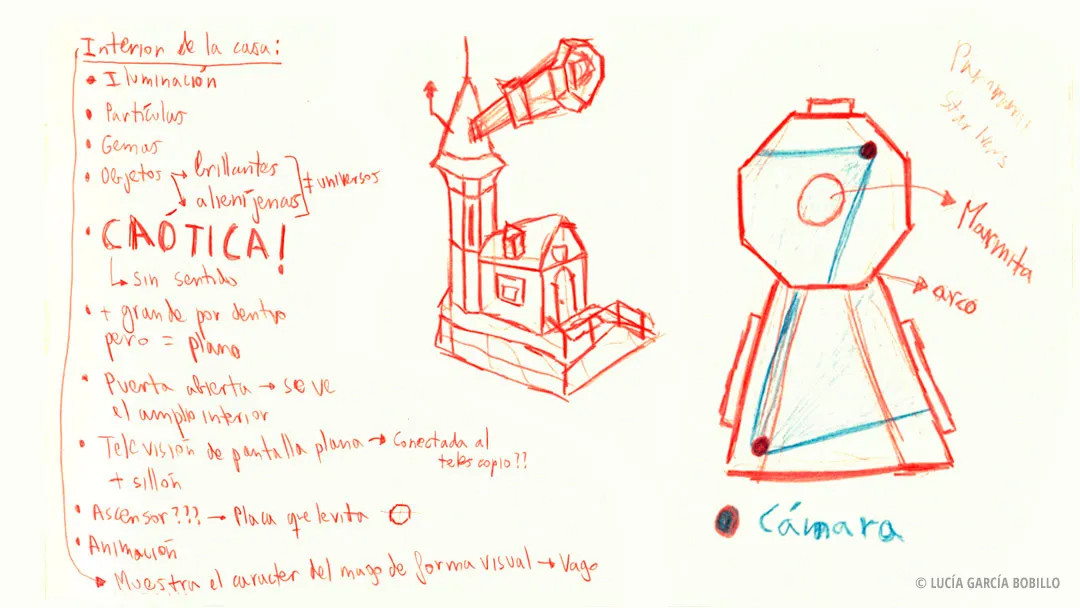 Interior de la casa:
• Iluminación
• Partículas
• Gemas
• Objetos → brillantes
→ alienígenas
≠ universos
• CAÓTICA!
↳ sin sentido
• + grande por dentro
pero = plano
• Puerta abierta → se ve
el amplio interior
• Televisión de pantalla plana → Conectada al
telescopio??
+ sillón
• Ascensor??? → Placa que levita
• Animación
→ Muestra el caracter del mago de forma visual → Vago
Marmita
arco
Cámara
© LUCÍA GARCÍA BOBILLO